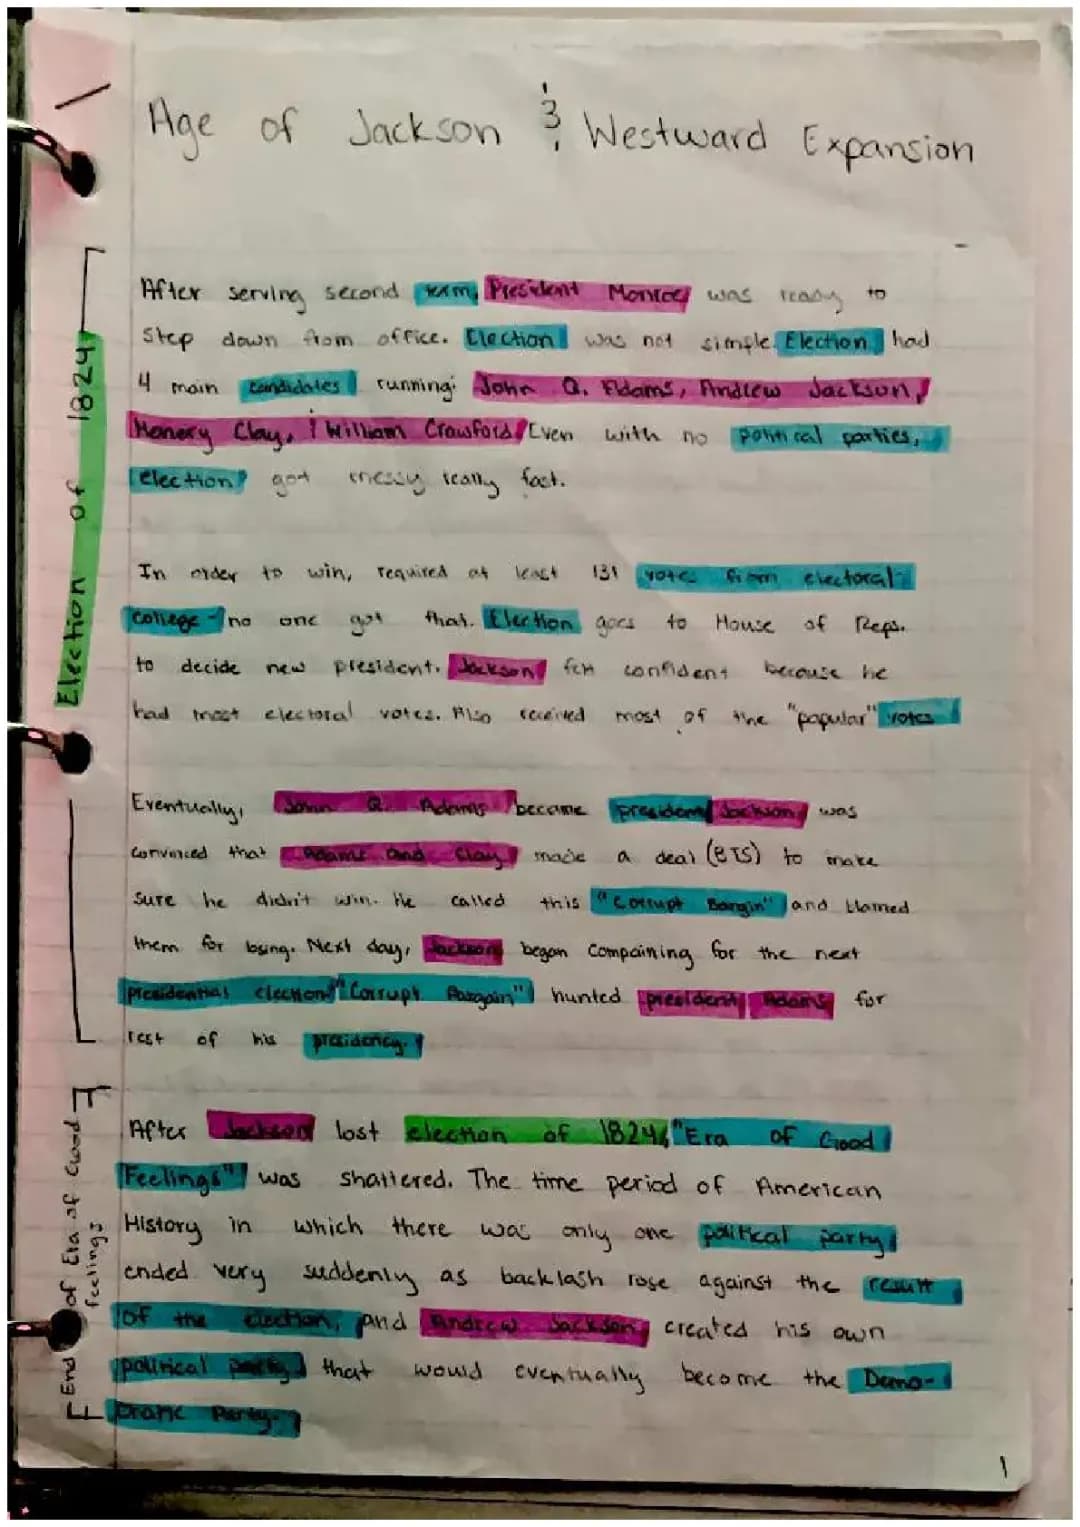 Age of Jackson & Westward Expansion
Election of 1824
After serving second term, President Monroe was ready to
step down from office. Election was not simple. Election had
4 main candidates running: John Q. Adams, Andrew Jackson,
Henery Clay, & William Crawford. Even with no political parties,
election got messy really fast.
In order to win, required at least 131 votes from electoral
college - no one got that. Election goes to House of Reps.
to decide new president. Jackson felt confident because he
had most electoral votes. Also received most of the "popular" votes
Eventually, John Q. Adams became president Jackson was
convinced that Adams and Clay made a deal (BTS) to make
sure he didn't win. He called this "Corrupt Bargin" and blamed
them for losing. Next day, Jackson began compaining for the next
presidential election. "Corrupt Bargain" hunted president Adams for
rest of his presidency.
End of Era of Good
feelings
After Jackson lost election of 1824, "Era of Good
Feelings" was shattered. The time period of American
History in which there was only one political party
ended very suddenly as backlash rose against the result
of the election, and Andrew Jackson created his own
political party that would eventually become the Demo-
cratic Party.
1